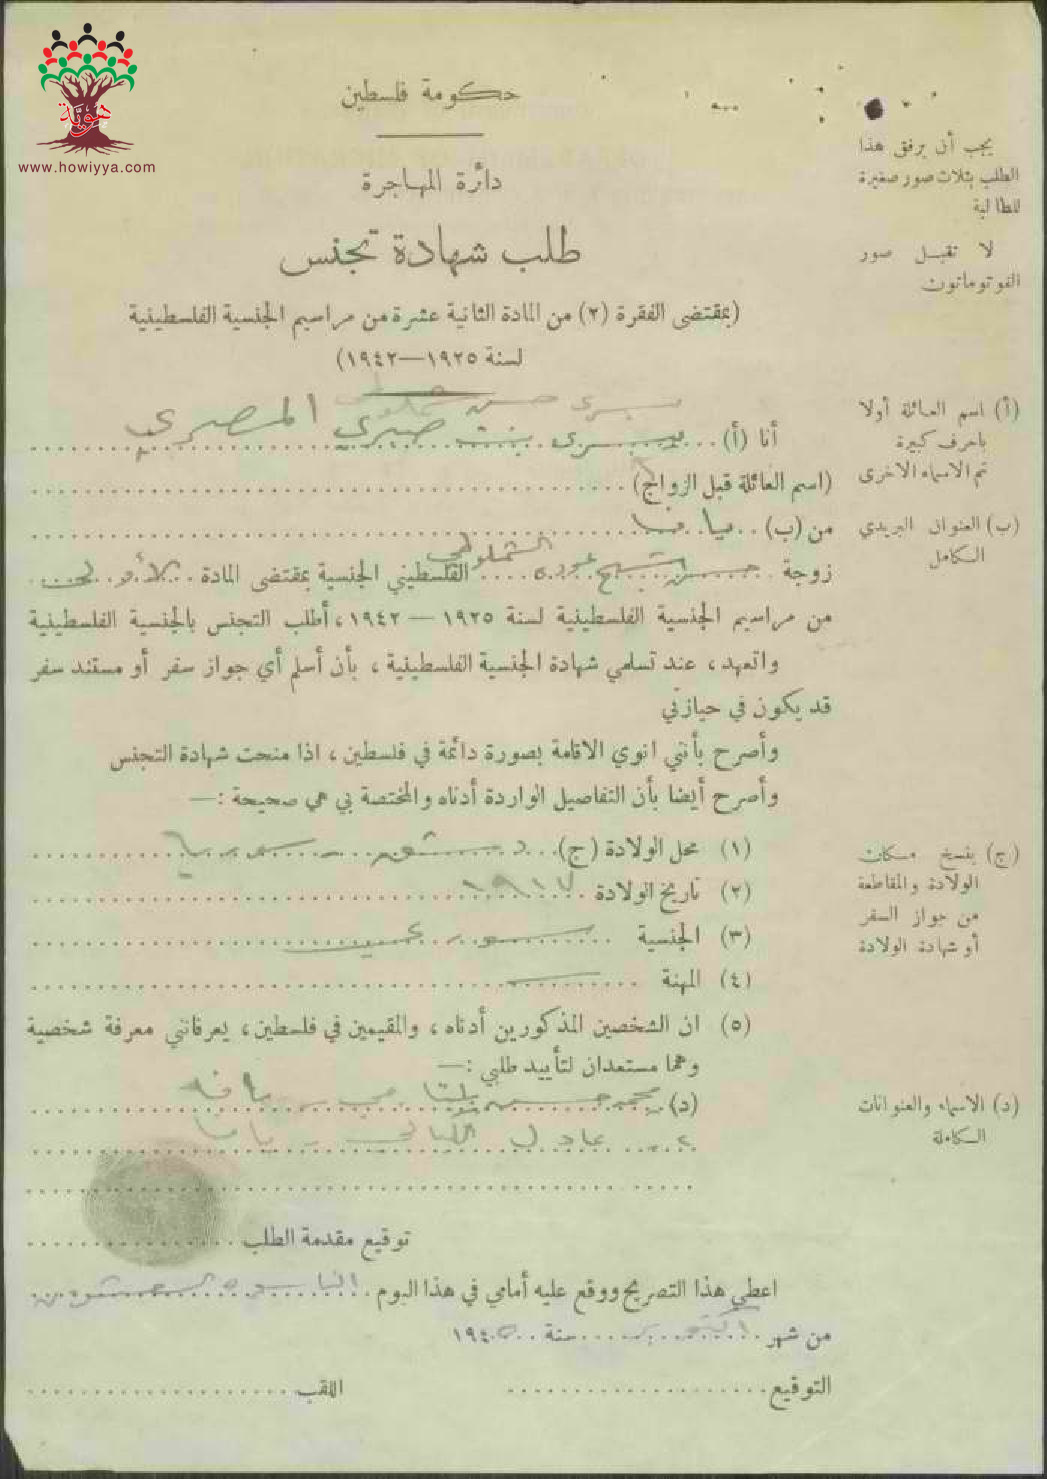 هوية
www.howiyya.com
حكومة فلسطين
دائرة المهاجرة
طلب شهادة تجنس
(بمقتضى الفقرة (٢) من المادة الثانية عشرة من مراسيم الجنسية الفلسطينية
لسنة ١٩٢٥—١٩٤٢)
يجب أن يرفق هذا
الطلب بثلاث صور صغيرة
للطالبة
لا تقبل صور
الفوتوماتون
يسرى حسن
أنا (أ) يسرى بنت صبري المصري
(أ) اسم العائلة أولا
باحرف كبيرة
ثم الاسماء الاخرى
(اسم العائلة قبل الزواج)
من (ب) يافا
(ب) العنوان البريدي
الكامل
زوجة حسن الفلسطيني الجنسية بمقتضى المادة الأولى
من مراسيم الجنسية الفلسطينية لسنة ١٩٢٥ — ١٩٤٢، أطلب التجنس بالجنسية الفلسطينية
واتعهد، عند تسلمي شهادة الجنسية الفلسطينية، بأن أسلم أي جواز سفر أو مستند سفر
قد يكون في حيازتي
وأصرح بأنني انوي الاقامة بصورة دائمة في فلسطين، اذا منحت شهادة التجنس
وأصرح أيضا بأن التفاصيل الواردة أدناه والمختصة بي هي صحيحة :—
(١) محل الولادة (ج) دمشق - سوريا
(٢) تاريخ الولادة ١٩١٧
(٣) الجنسية
(٤) المهنة
(ج) بنسخ مكان
الولادة والمقاطعة
من جواز السفر
أو شهادة الولادة
(٥) ان الشخصين المذكورين أدناه، والمقيمين في فلسطين، يعرفانني معرفة شخصية
وهما مستعدان لتأييد طلبي :—
(د) محمد حسن - يافا
عادل - يافا
(د) الاسماء والعنوانات
الكاملة
توقيع مقدمة الطلب
اعطي هذا التصريح ووقع عليه أمامي في هذا اليوم
من شهر اكتوبر سنة ١٩٤٥
التوقيع اللقب